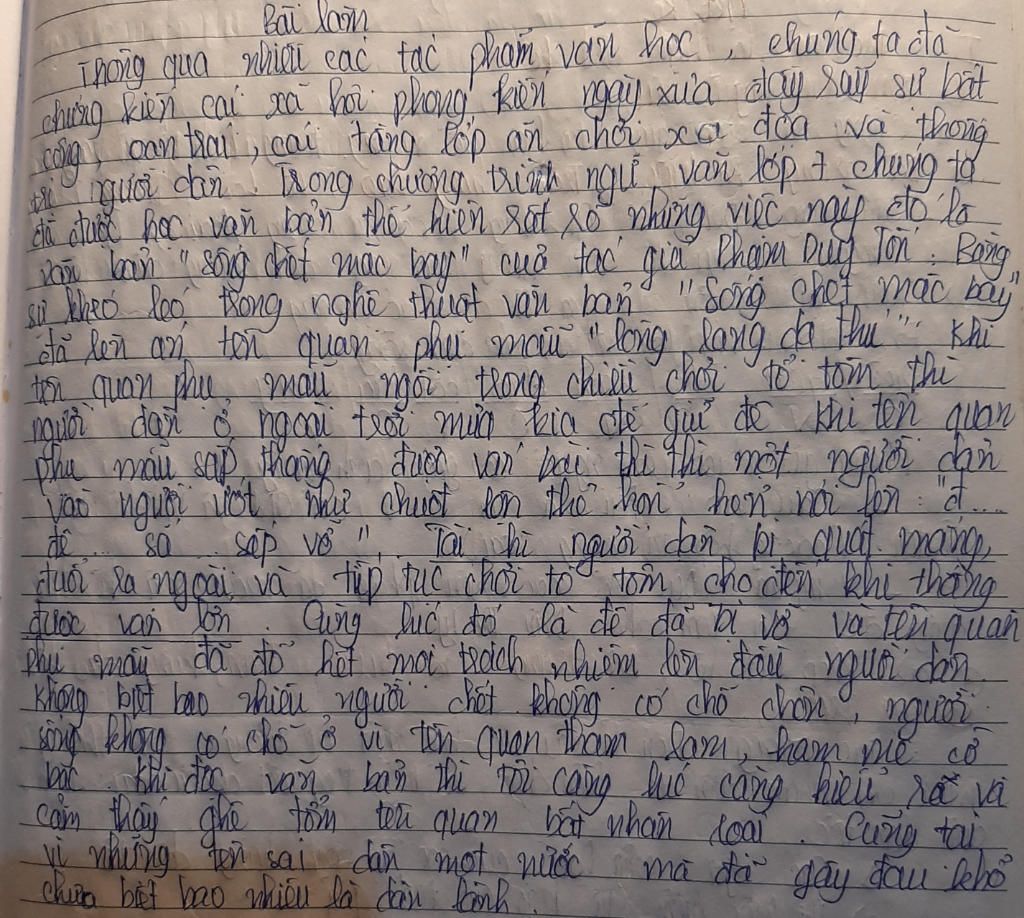 Bài làm
Thông qua nhiều các tác phẩm văn học, chúng ta đã
chứng kiến cái xã hội phong kiến ngày xưa đầy rẫy sự bất
công, oan trái, cái tầng lớp ăn chơi xa đọa và thống
trị người dân. Trong chương trình ngữ văn lớp 7 chúng ta
đã được học văn bản thể hiện rất rõ những việc này đó là
văn bản "sống chết mặc bay" của tác giả Phạm Duy Tốn. Bằng
sự khéo léo trong nghệ thuật văn bản "Sống chết mặc bay"
đã lên án tên quan phụ mẫu "lòng lang dạ thú". Khi
tên quan phụ mẫu ngồi trong chiếu chơi tổ tôm thì
người dân ở ngoài trời mưa kia để giữ đê. Khi tên quan
phụ mẫu sắp thắng được ván bài thì thì một người dân
vào người ướt như chuột lột thở hổn hển nói lên: "đ....
đê... sa... sắp vỡ". Tại thì người dân bị quát mắng,
đuổi ra ngoài và tiếp tục chơi tổ tôm cho đến khi thắng
được ván lớn. Cũng lúc đó là đê đã bị vỡ và tên quan
phụ mẫu đã đổ hết mọi trách nhiệm lên đầu người dân.
Không biết bao nhiêu người chết không có chỗ chôn, người
sống không có chỗ ở vì tên quan tham lam, ham mê cờ
bạc. Khi đọc văn bản thì tôi càng lúc càng hiểu rõ và
cảm thấy ghê tởm tên quan bất nhân loại. Cũng tại
vì những tên sai dân một nước mà đã gây đau khổ
chưa biết bao nhiêu là dân lành.